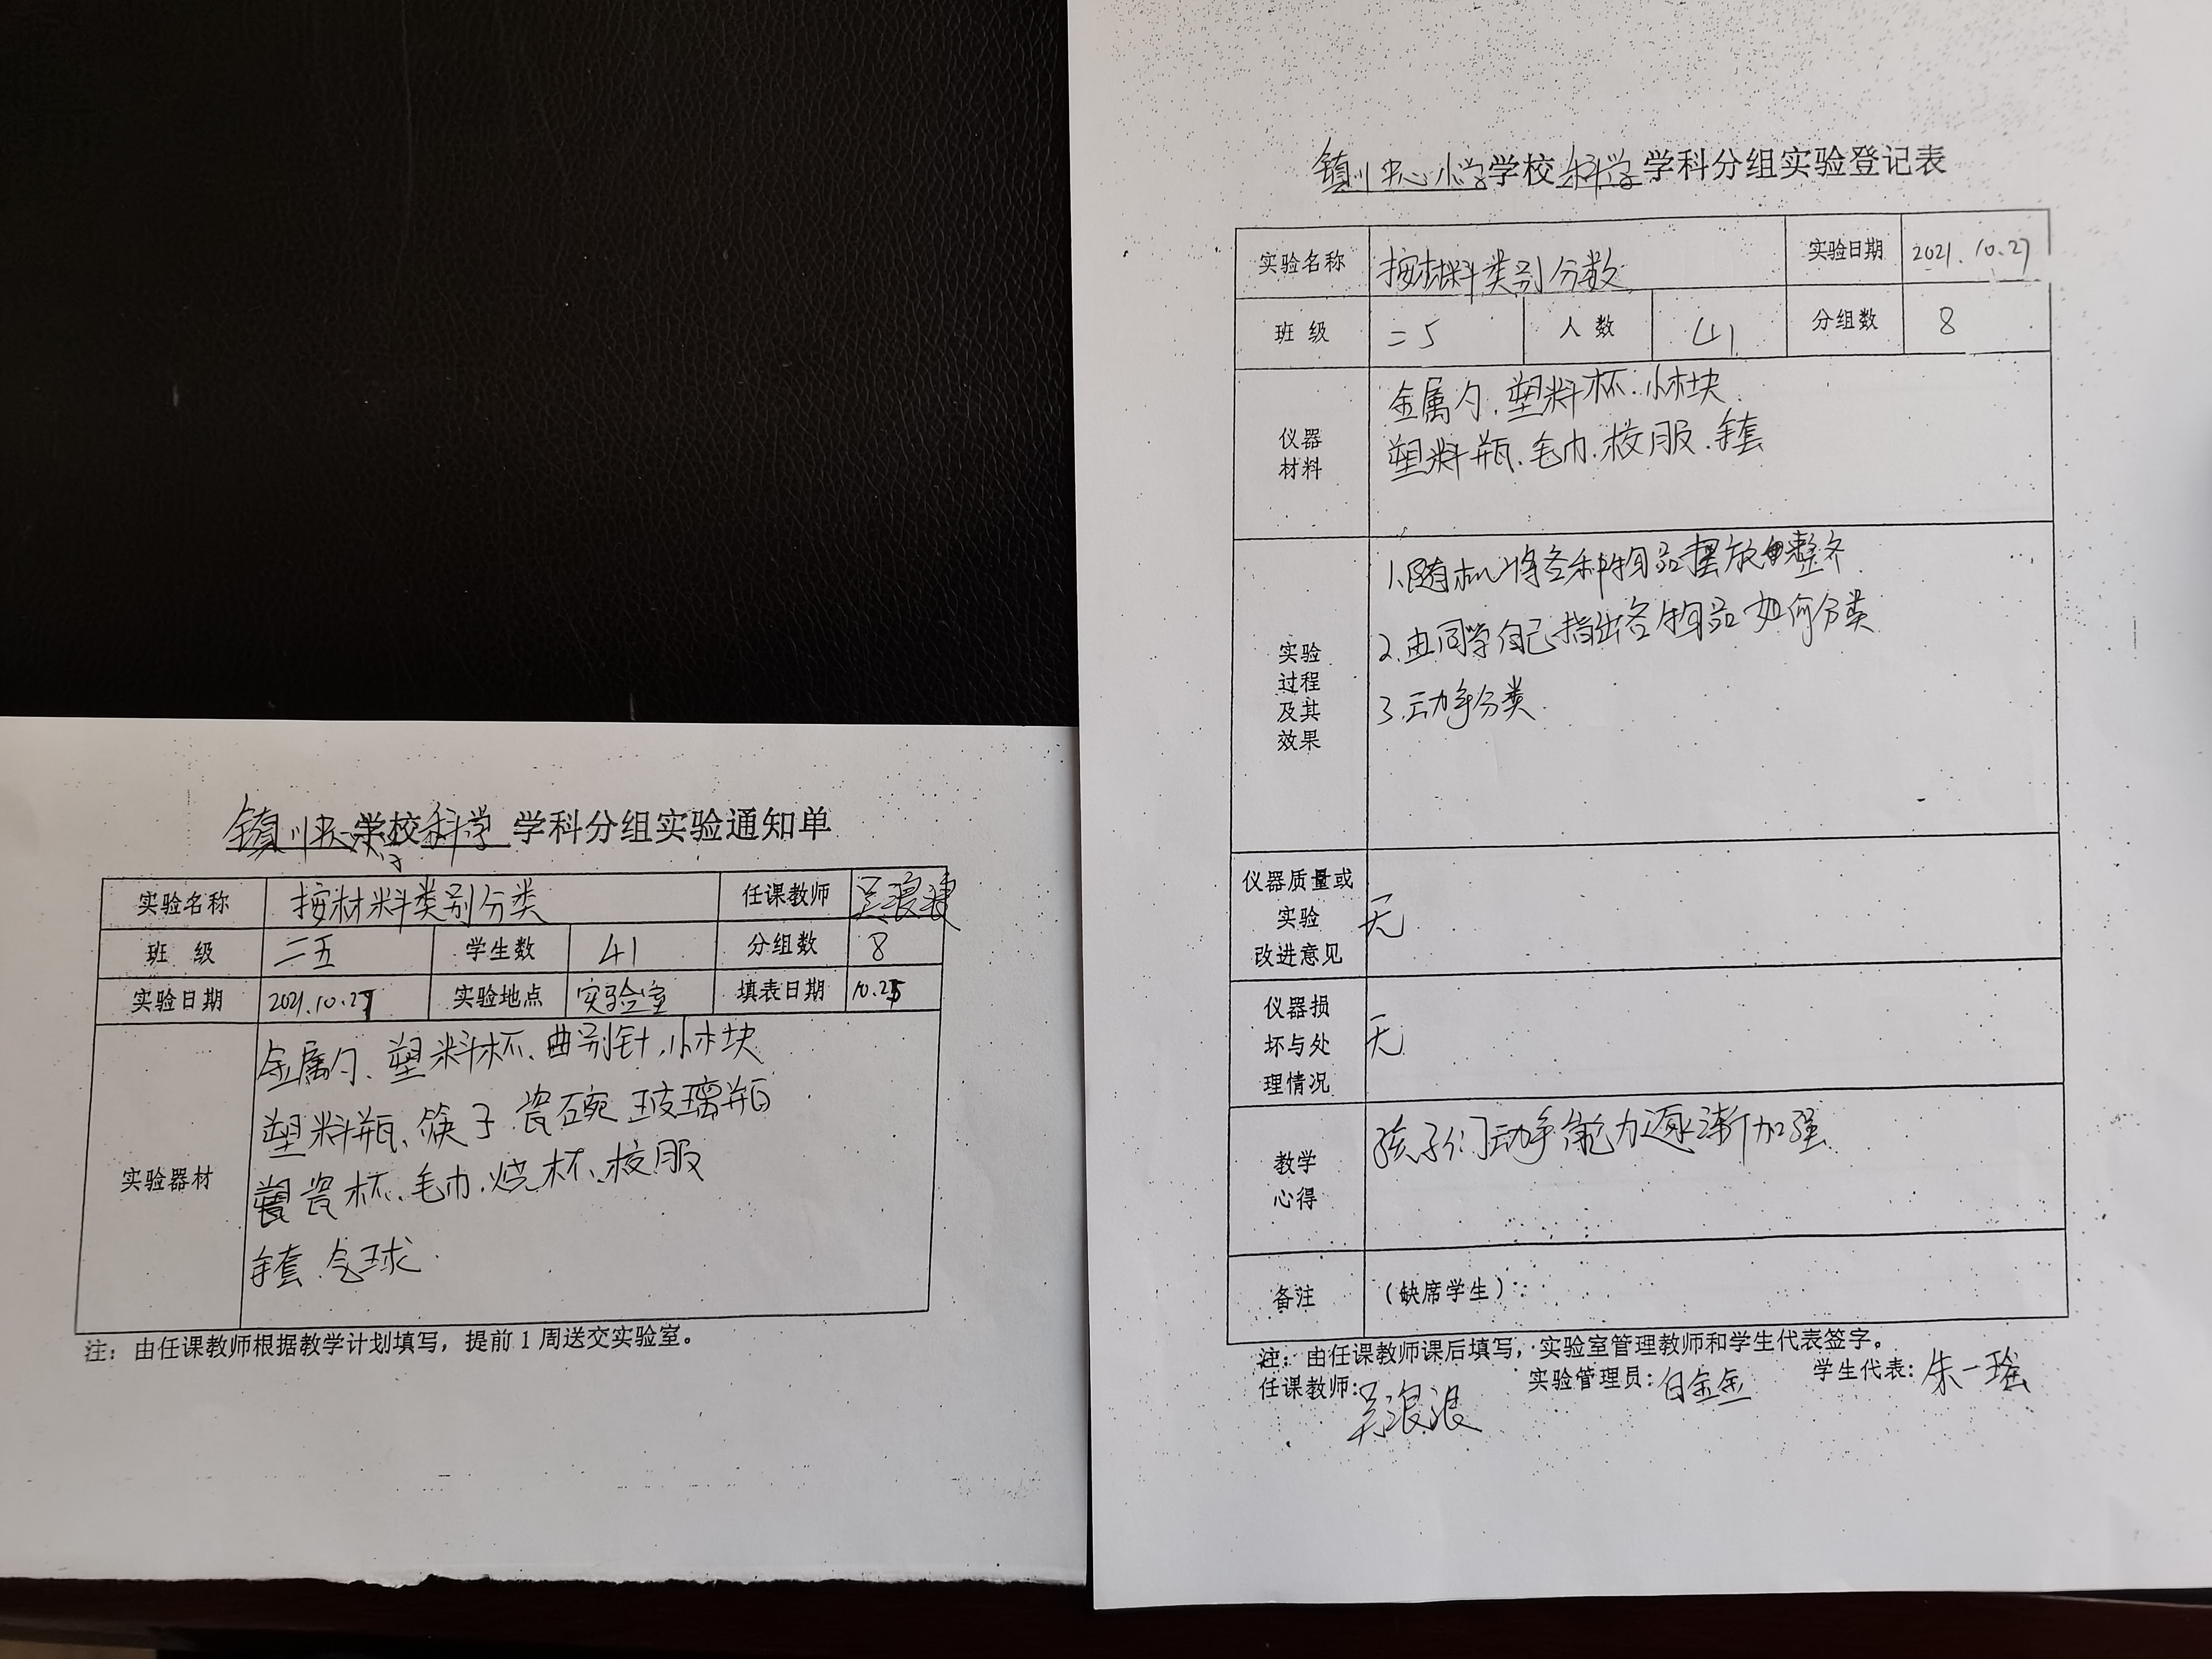 镇川中心小学学校科学学科分组实验通知单
实验名称 按材料类别分类 任课教师 吴浪浪
班 级 二五 学生数 41 分组数 8
实验日期 2021.10.27 实验地点 实验室 填表日期 10.25
实验器材
金属勺、塑料杯、曲别针、小木块
塑料瓶、筷子 瓷碗 玻璃瓶
瓷杯、毛巾、烧杯、校服
手套、气球.
注：由任课教师根据教学计划填写，提前1周送交实验室。
镇川中心小学学校科学学科分组实验登记表
实验名称 按材料类别分数 实验日期 2021.10.27
班 级 二5 人 数 41 分组数 8
仪器
材料
金属勺、塑料杯、小木块
塑料瓶、毛巾、校服、手套
实验
过程
及其
效果
1.随机将各种物品摆放整齐
2.由同学自己指出各物品如何分类
3.动手分类
仪器质量或
实验
改进意见
无
仪器损
坏与处
理情况
无
教学
心得
孩子们动手能力逐渐加强
备注 （缺席学生）：
注：由任课教师课后填写，实验室管理教师和学生代表签字。
任课教师：吴浪浪 实验管理员：白金金 学生代表：朱一瑶